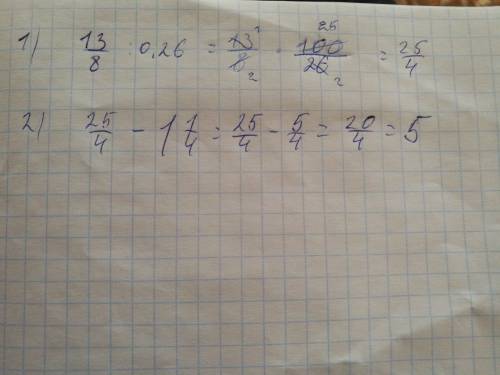 1) 13/8 : 0,26 = 13¹/8₂ · 100²⁵/26₂ = 25/4
2) 25/4 - 1 1/4 = 25/4 - 5/4 = 20/4 = 5